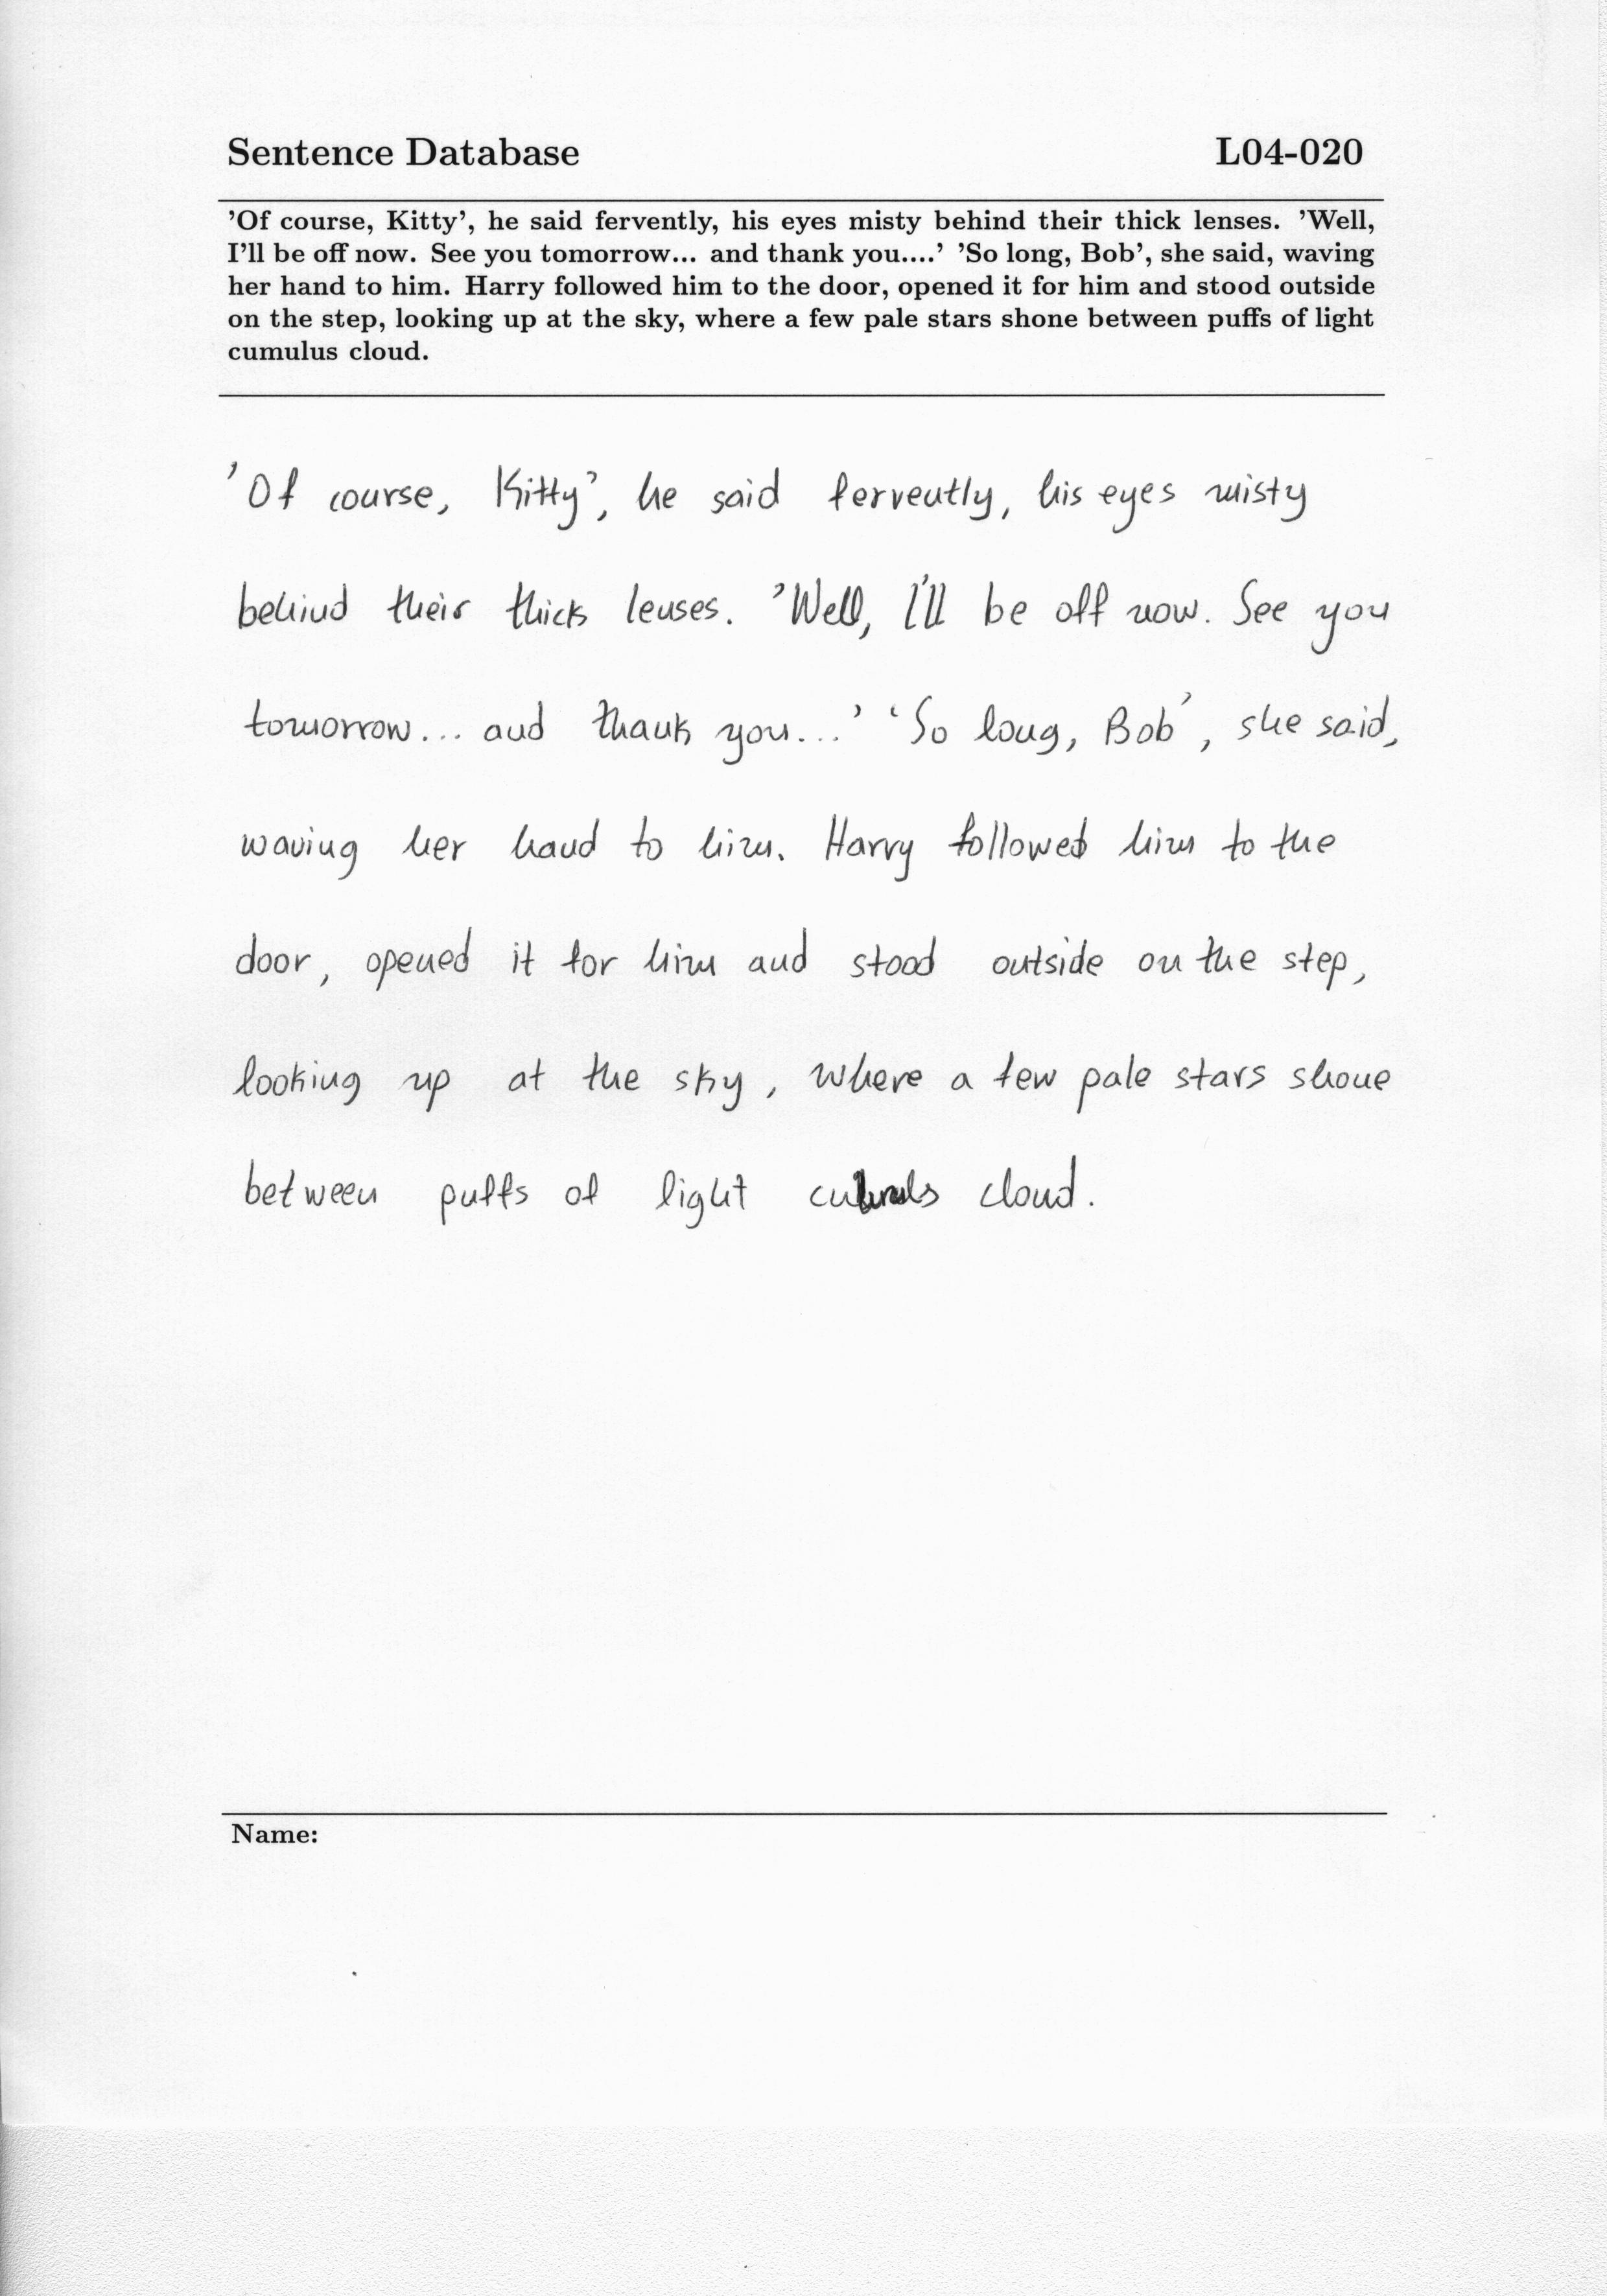 Sentence Database L04-020
’Of course, Kitty’, he said fervently, his eyes misty behind their thick lenses. ’Well,
I’ll be off now. See you tomorrow... and thank you....’ ’So long, Bob’, she said, waving
her hand to him. Harry followed him to the door, opened it for him and stood outside
on the step, looking up at the sky, where a few pale stars shone between puffs of light
cumulus cloud.
’Of course, Kitty’, he said fervently, his eyes misty
behind their thick lenses. ’Well, I’ll be off now. See you
tomorrow... and thank you...’ ‘So long, Bob’, she said,
waving her hand to him. Harry followed him to the
door, opened it for him and stood outside on the step,
looking up at the sky, where a few pale stars shone
between puffs of light cloud.
Name: